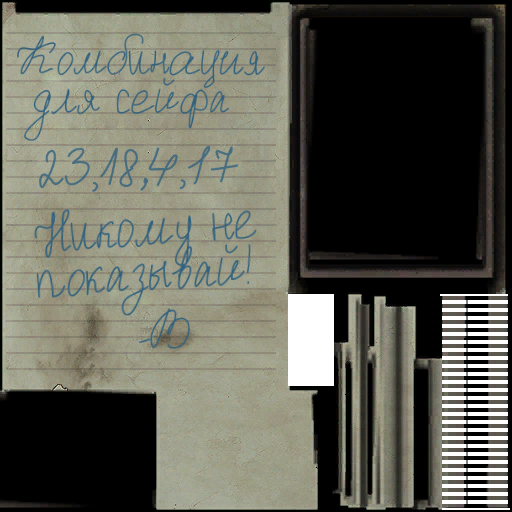 Комбинация
для сейфа
23,18,4,17
Никому не
показывай!
-В